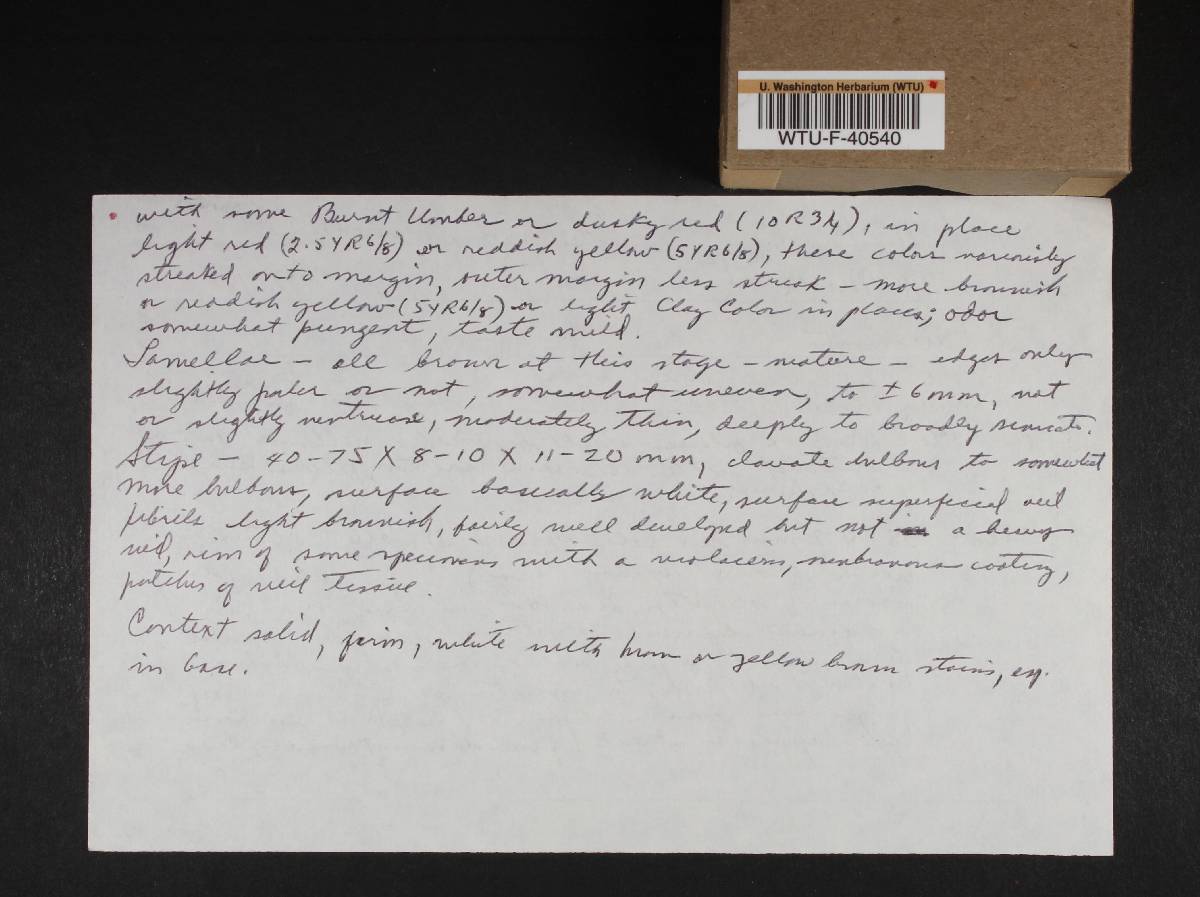 U. Washington Herbarium (WTU)
WTU-F-40540
with some Burnt Umber or dusky red (10R3/4), in place
light red (2.5YR6/8) or reddish yellow (5YR6/8), these color variously
streaked onto margin, outer margin less streak - more brownish
or reddish yellow (5YR6/8) or light Clay Color in places; odor
somewhat pungent, taste mild.
Lamellae - all brown at this stage - mature - edges only
slightly paler or not, somewhat uneven, to ± 6 mm, not
or slightly ventricose, moderately thin, deeply to broadly sinuate.
Stipe - 40-75 X 8-10 X 11-20 mm, clavate bulbous to somewhat
more bulbous, surface basically white, surface superficial veil
fibrils light brownish, fairly well developed but not a heavy
veil, rim of some specimens with a violaceus, membranous coating,
patches of veil tissue.
Context solid, firm, white with brown or yellow brown stains, esp.
in base.